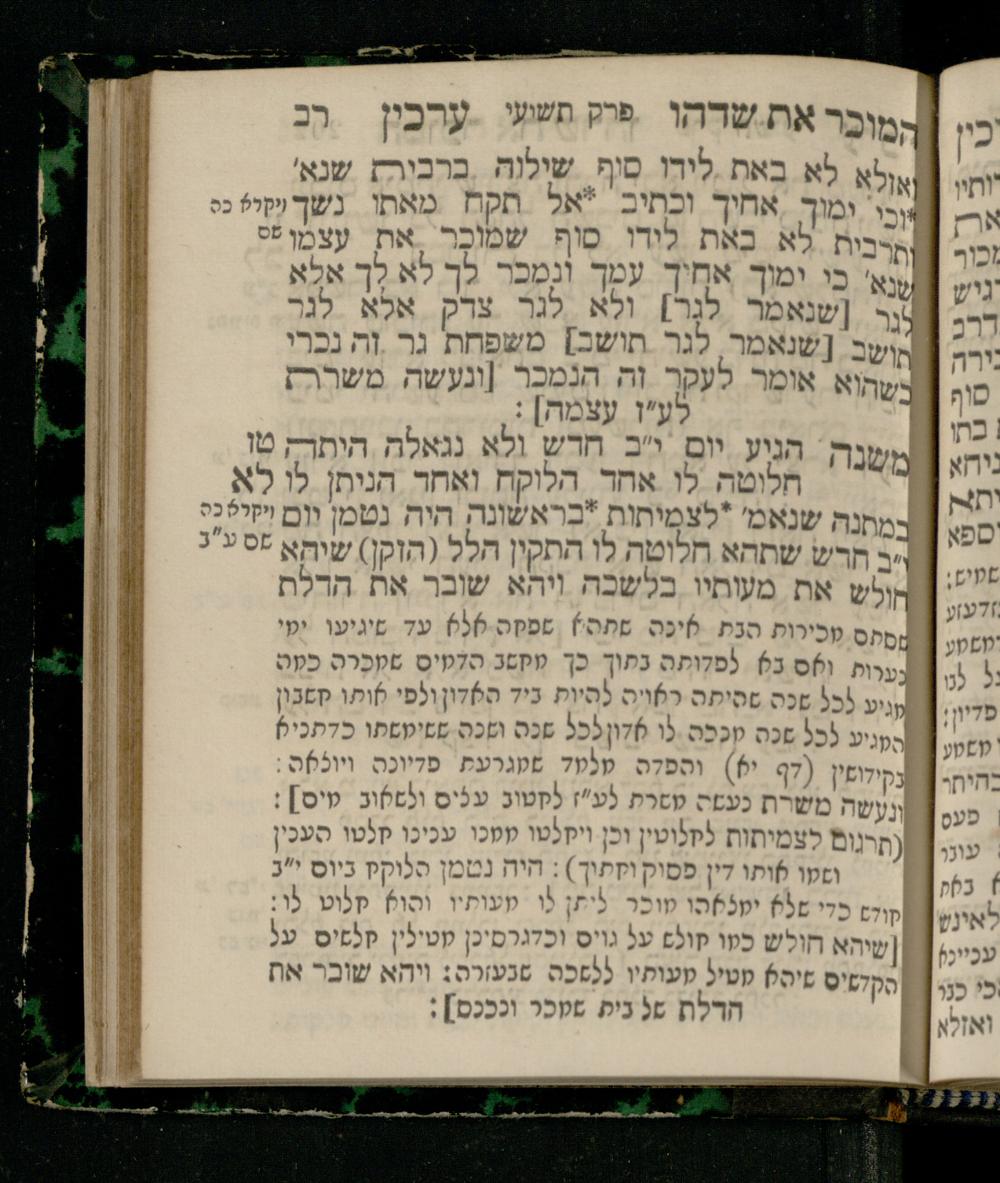 המוכר את שדהו פרק תשועי ערכין רב
ואזלא לא באת לידו סוף שילוה ברבית שנא׳
*וכי ימוך אחיך וכתיב *אל תקח מאתו נשך ויקרא כה
ותרבית לא באת לידו סוף שמוכר את עצמו שם
שנא׳ כי ימוך אחיך עמך ונמכר לך לא לך אלא
לגר [שנאמר לגר] ולא לגר צדק אלא לגר
תושב [שנאמר לגר תושב] משפחת גר זה נכרי
כשהוא אומר לעקר זה הנמכר [ונעשה משרת
לע״ז עצמה]:
משנה הגיע יום י״ב חדש ולא נגאלה היתה טו
חלוטה לו אחד הלוקח ואחד הניתן לו לא
במתנה שנאמ׳ *לצמיתות *בראשונה היה נטמן יום ויקרא כה
י״ב חדש שתהא חלוטה לו התקין הלל (הזקן) שיהא שם ע״ב
חולש את מעותיו בלשכה ויהא שובר את הדלת
שסתם מכירות הבת אינה שתהא שפחה אלא עד שיגיעו ימי
נערות ואם בא לפדותה בתוך כך מחשב הדמים שמכרה כמה
מגיע לכל שנה שהיתה ראויה להיות ביד האדון ולפי אותו חשבון
המגיע לכל שנה מנכה לו אדון לכל שנה ושנה ששימשתו כדתניא
בקידושין (דף יא) והפדה מלמד שמגרעת פדיונה ויוצאה:
ונעשה משרת נעשה משרת לע״ז לחטוב עצים ולשאוב מים]:
(תרגום לצמיתות לחלוטין וכן ויחלטו ממנו ענינו חלטו הענין
ושמו אותו דין פסוק וחתיך): היה נטמן הלוקח ביום י״ב
חודש כדי שלא ימצאהו מוכר ליתן לו מעותיו והוא חלוט לו:
[שיהא חולש כמו חולש על גוים וכדגרסינן מטילין חלשים על
הקדשים שיהא מטיל מעותיו ללשכה שבעזרה: ויהא שובר את
הדלת של בית שמכר ונכנס]: